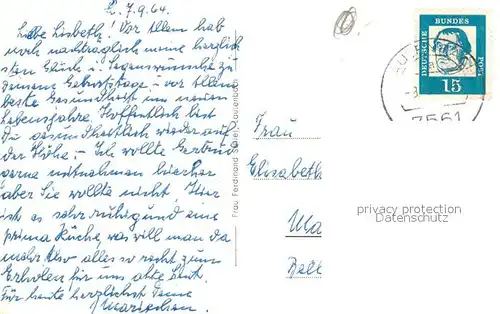 L. 7.9.64.
Liebe Lisbeth! Vor allem hab
noch nachträglich meine herzlich
sten Glück u. Segenswünsche zu
Deinem Geburtstage - vor allem
beste Gesundheit im neuen
Lebensjahre. Hoffentlich bist
Du gesundheitlich wieder auf
der Höhe. - Ich wollte Gertrud
gerne mitnehmen hierher
aber Sie wollte nicht. Hier
ist es sehr ruhig und eine
prima Küche, was will man da
mehr. Also alles so recht zum
Erholen für uns alte Leut.
Für heute herzlichst Deine
Mariechen.
Frau Ferdinand
DEUTSCHE
BUNDES
POST
15
7561
Frau
Elisabeth
Ma
privacy protection
Datenschutz